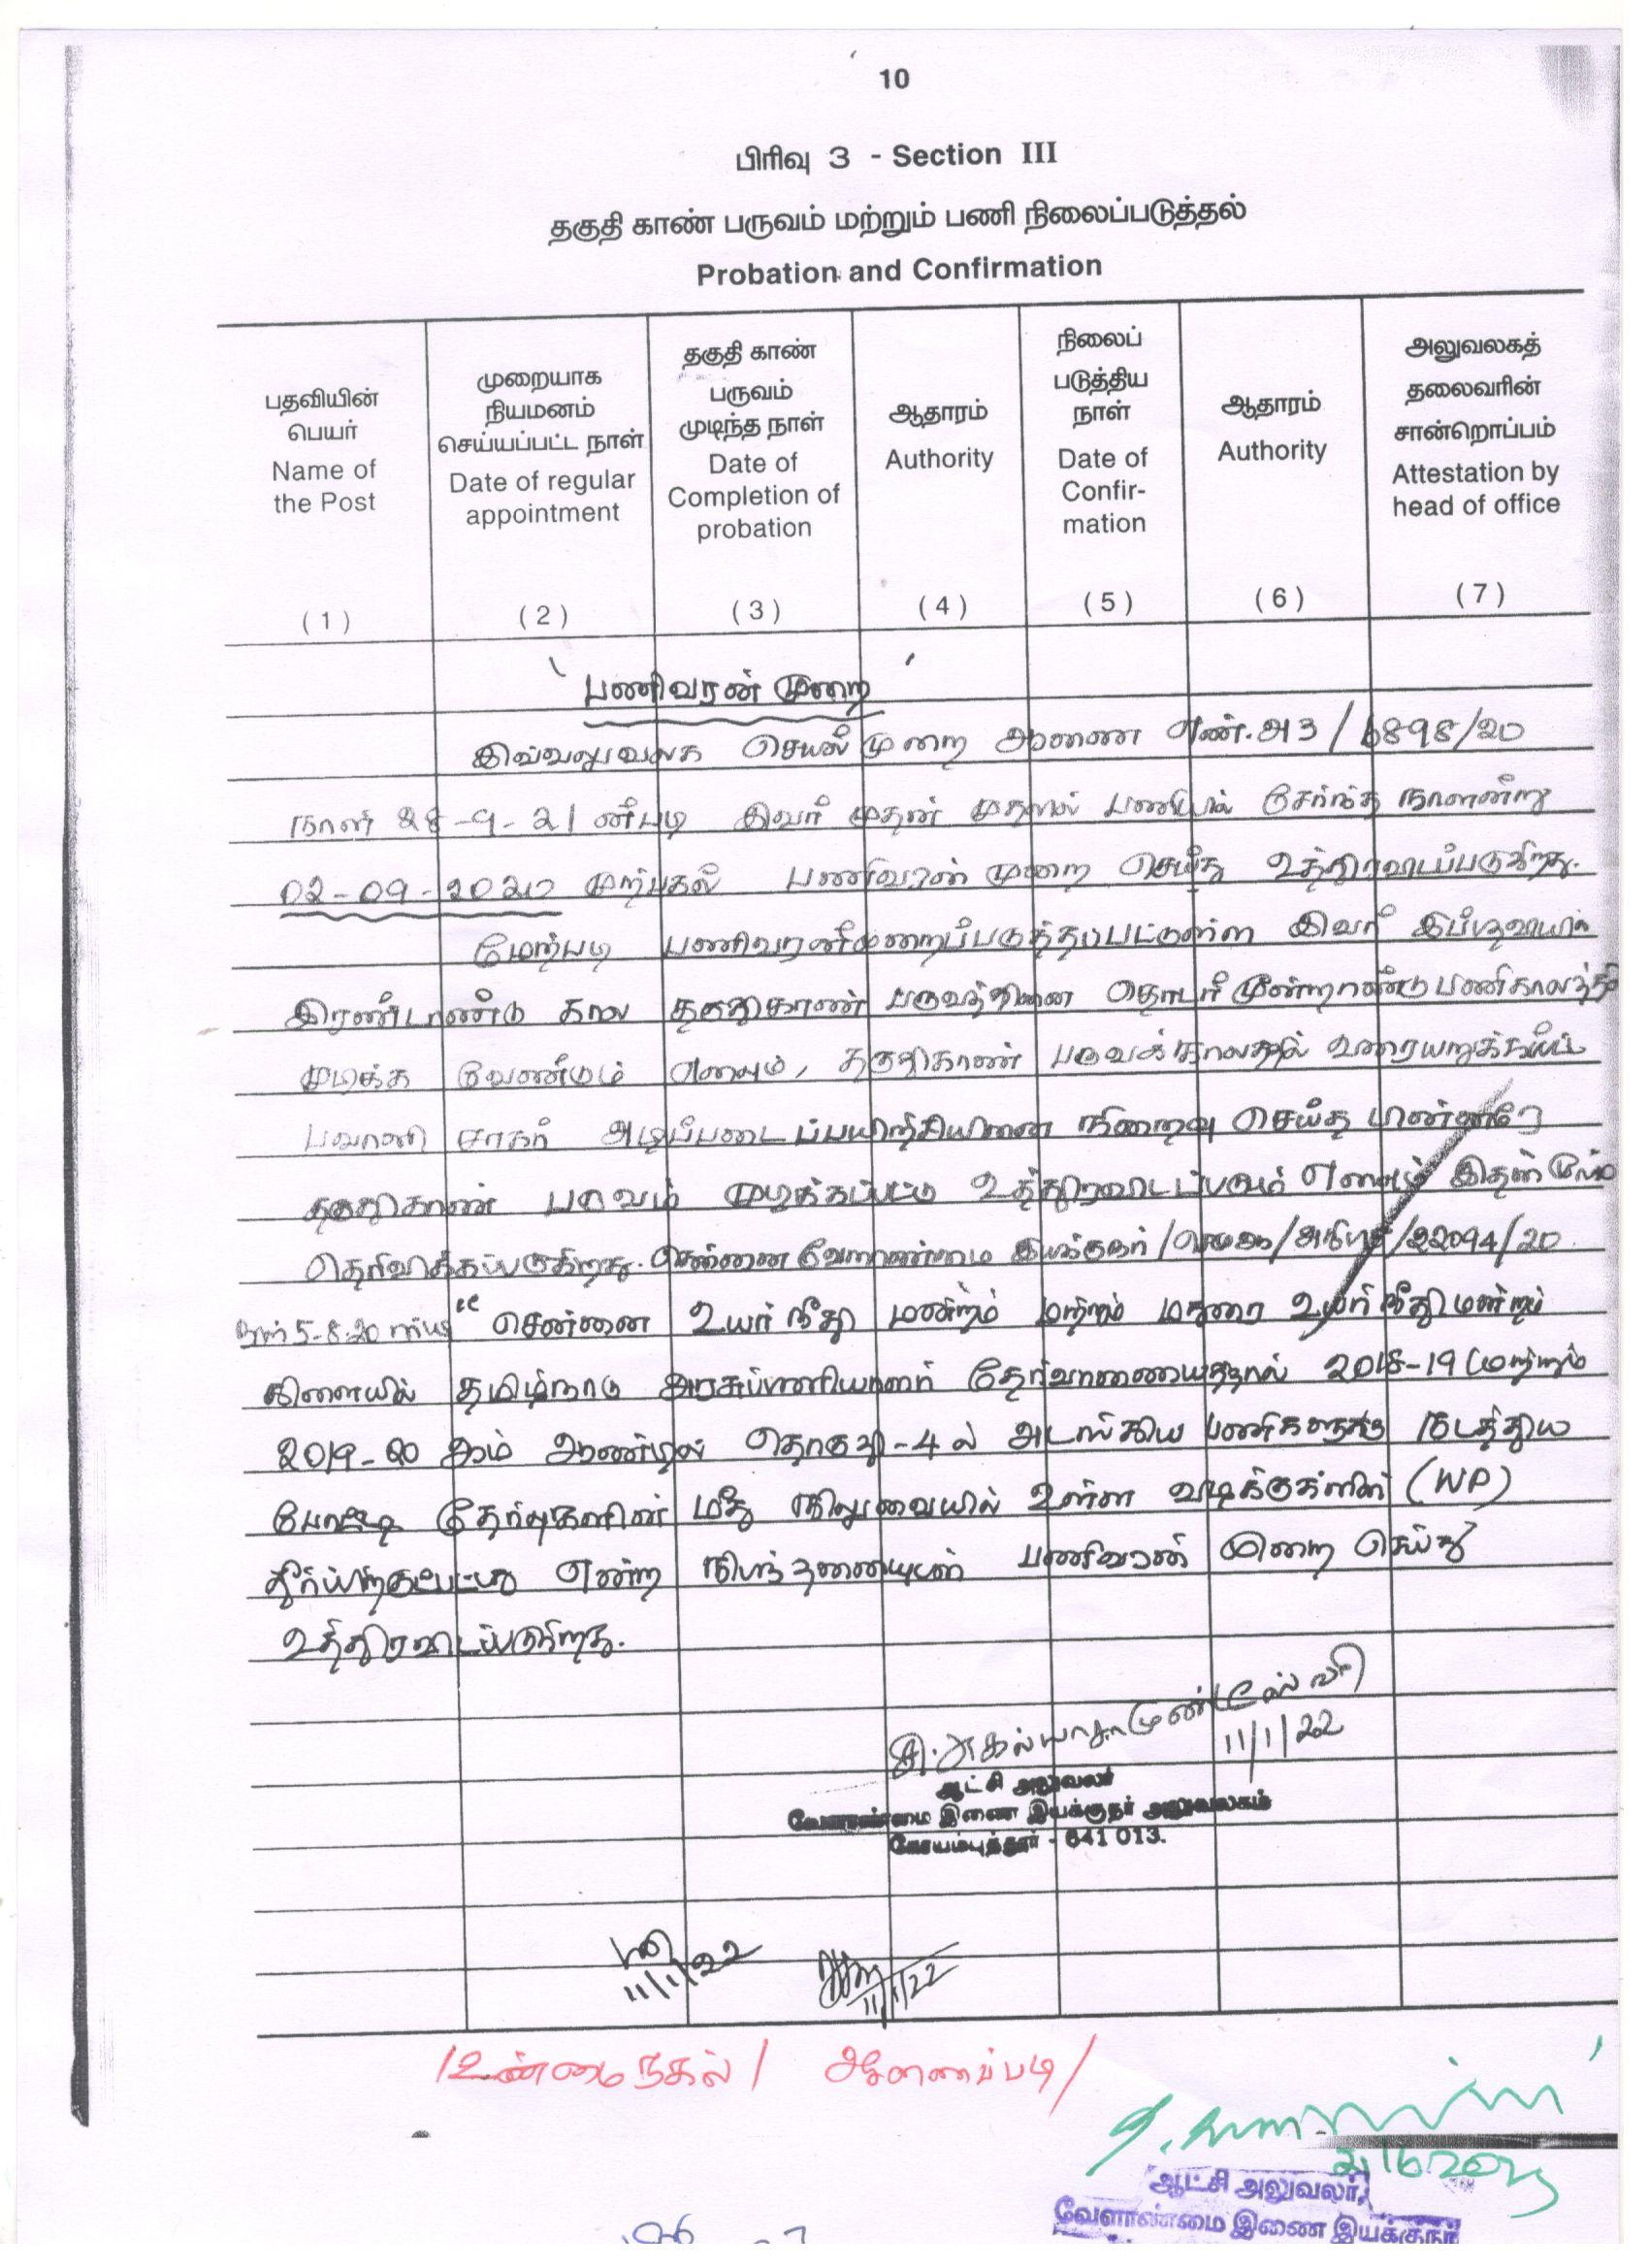 10
பிரிவு 3 - Section III
தகுதி காண் பருவம் மற்றும் பணி நிலைப்படுத்தல்
Probation and Confirmation
பதவியின் பெயர் Name of the Post (1)
முறையாக நியமனம் செய்யப்பட்ட நாள் Date of regular appointment (2)
தகுதி காண் பருவம் முடிந்த நாள் Date of Completion of probation (3)
ஆதாரம் Authority (4)
நிலைப் படுத்திய நாள் Date of Confir- mation (5)
ஆதாரம் Authority (6)
அலுவலகத் தலைவரின் சான்றொப்பம் Attestation by head of office (7)
பணிவரன் முறை
இவ்வலுவலக செயல் முறை ஆணை எண். அ3/6898/20
நாள் 28-9-21 ன்படி இவர் முதன் முதலில் பணியில் சேர்ந்த நாளன்று
02-09-2020 முற்பகல் பணிவரன் முறை செய்து உத்திரவிடப்படுகிறது.
மேற்படி பணிவரன்முறைப்படுத்தப்பட்டுள்ள இவர் இப்பதவியில்
இரண்டாண்டு கால தகுதிகாண் பருவத்தினை தொடர் மூன்றாண்டு பணிகாலத்தில்
முடிக்க வேண்டும் எனவும், தகுதிகாண் பருவக்காலத்தில்
பவானி சாகர் அடிப்படைப்பயிற்சியினை நிறைவு செய்த பின்னரே
தகுதிகாண் பருவம் முடிக்கப்பட்டு உத்திரவிடப்படும் எனவும் இதன் மூலம்
தெரிவிக்கப்படுகிறது. சென்னை வேளாண்மை இயக்குநர் /22094/20
நாள் 5-8-20 ன்படி "சென்னை உயர் நீதி மன்றம் மற்றும் மதுரை உயர் நீதிமன்றம்
கிளையில் தமிழ்நாடு அரசுப்பணியாளர் தேர்வாணையத்தால் 2018-19 மற்றும்
2019-20 ஆம் ஆண்டில் தொகுதி-4 ல் அடங்கிய பணிகளுக்கு நடத்திய
போட்டி தேர்வுகளின் மீது நிலுவையில் உள்ள வழக்குகளின் (WP)
தீர்ப்பிற்குட்பட்டது என்ற நிபந்தனையுடன் பணிவரன் முறை செய்து
உத்திரவிடப்படுகிறது.
11/1/22
ஆட்சி அலுவலர்
வேளாண்மை இணை இயக்குநர் அலுவலகம்
கோயம்புத்தூர் - 641 013.
11/1/22
11/1/22
/உண்மை நகல்/ ஆணைப்படி/
ஆட்சி அலுவலர்,
வேளாண்மை இணை இயக்குநர்